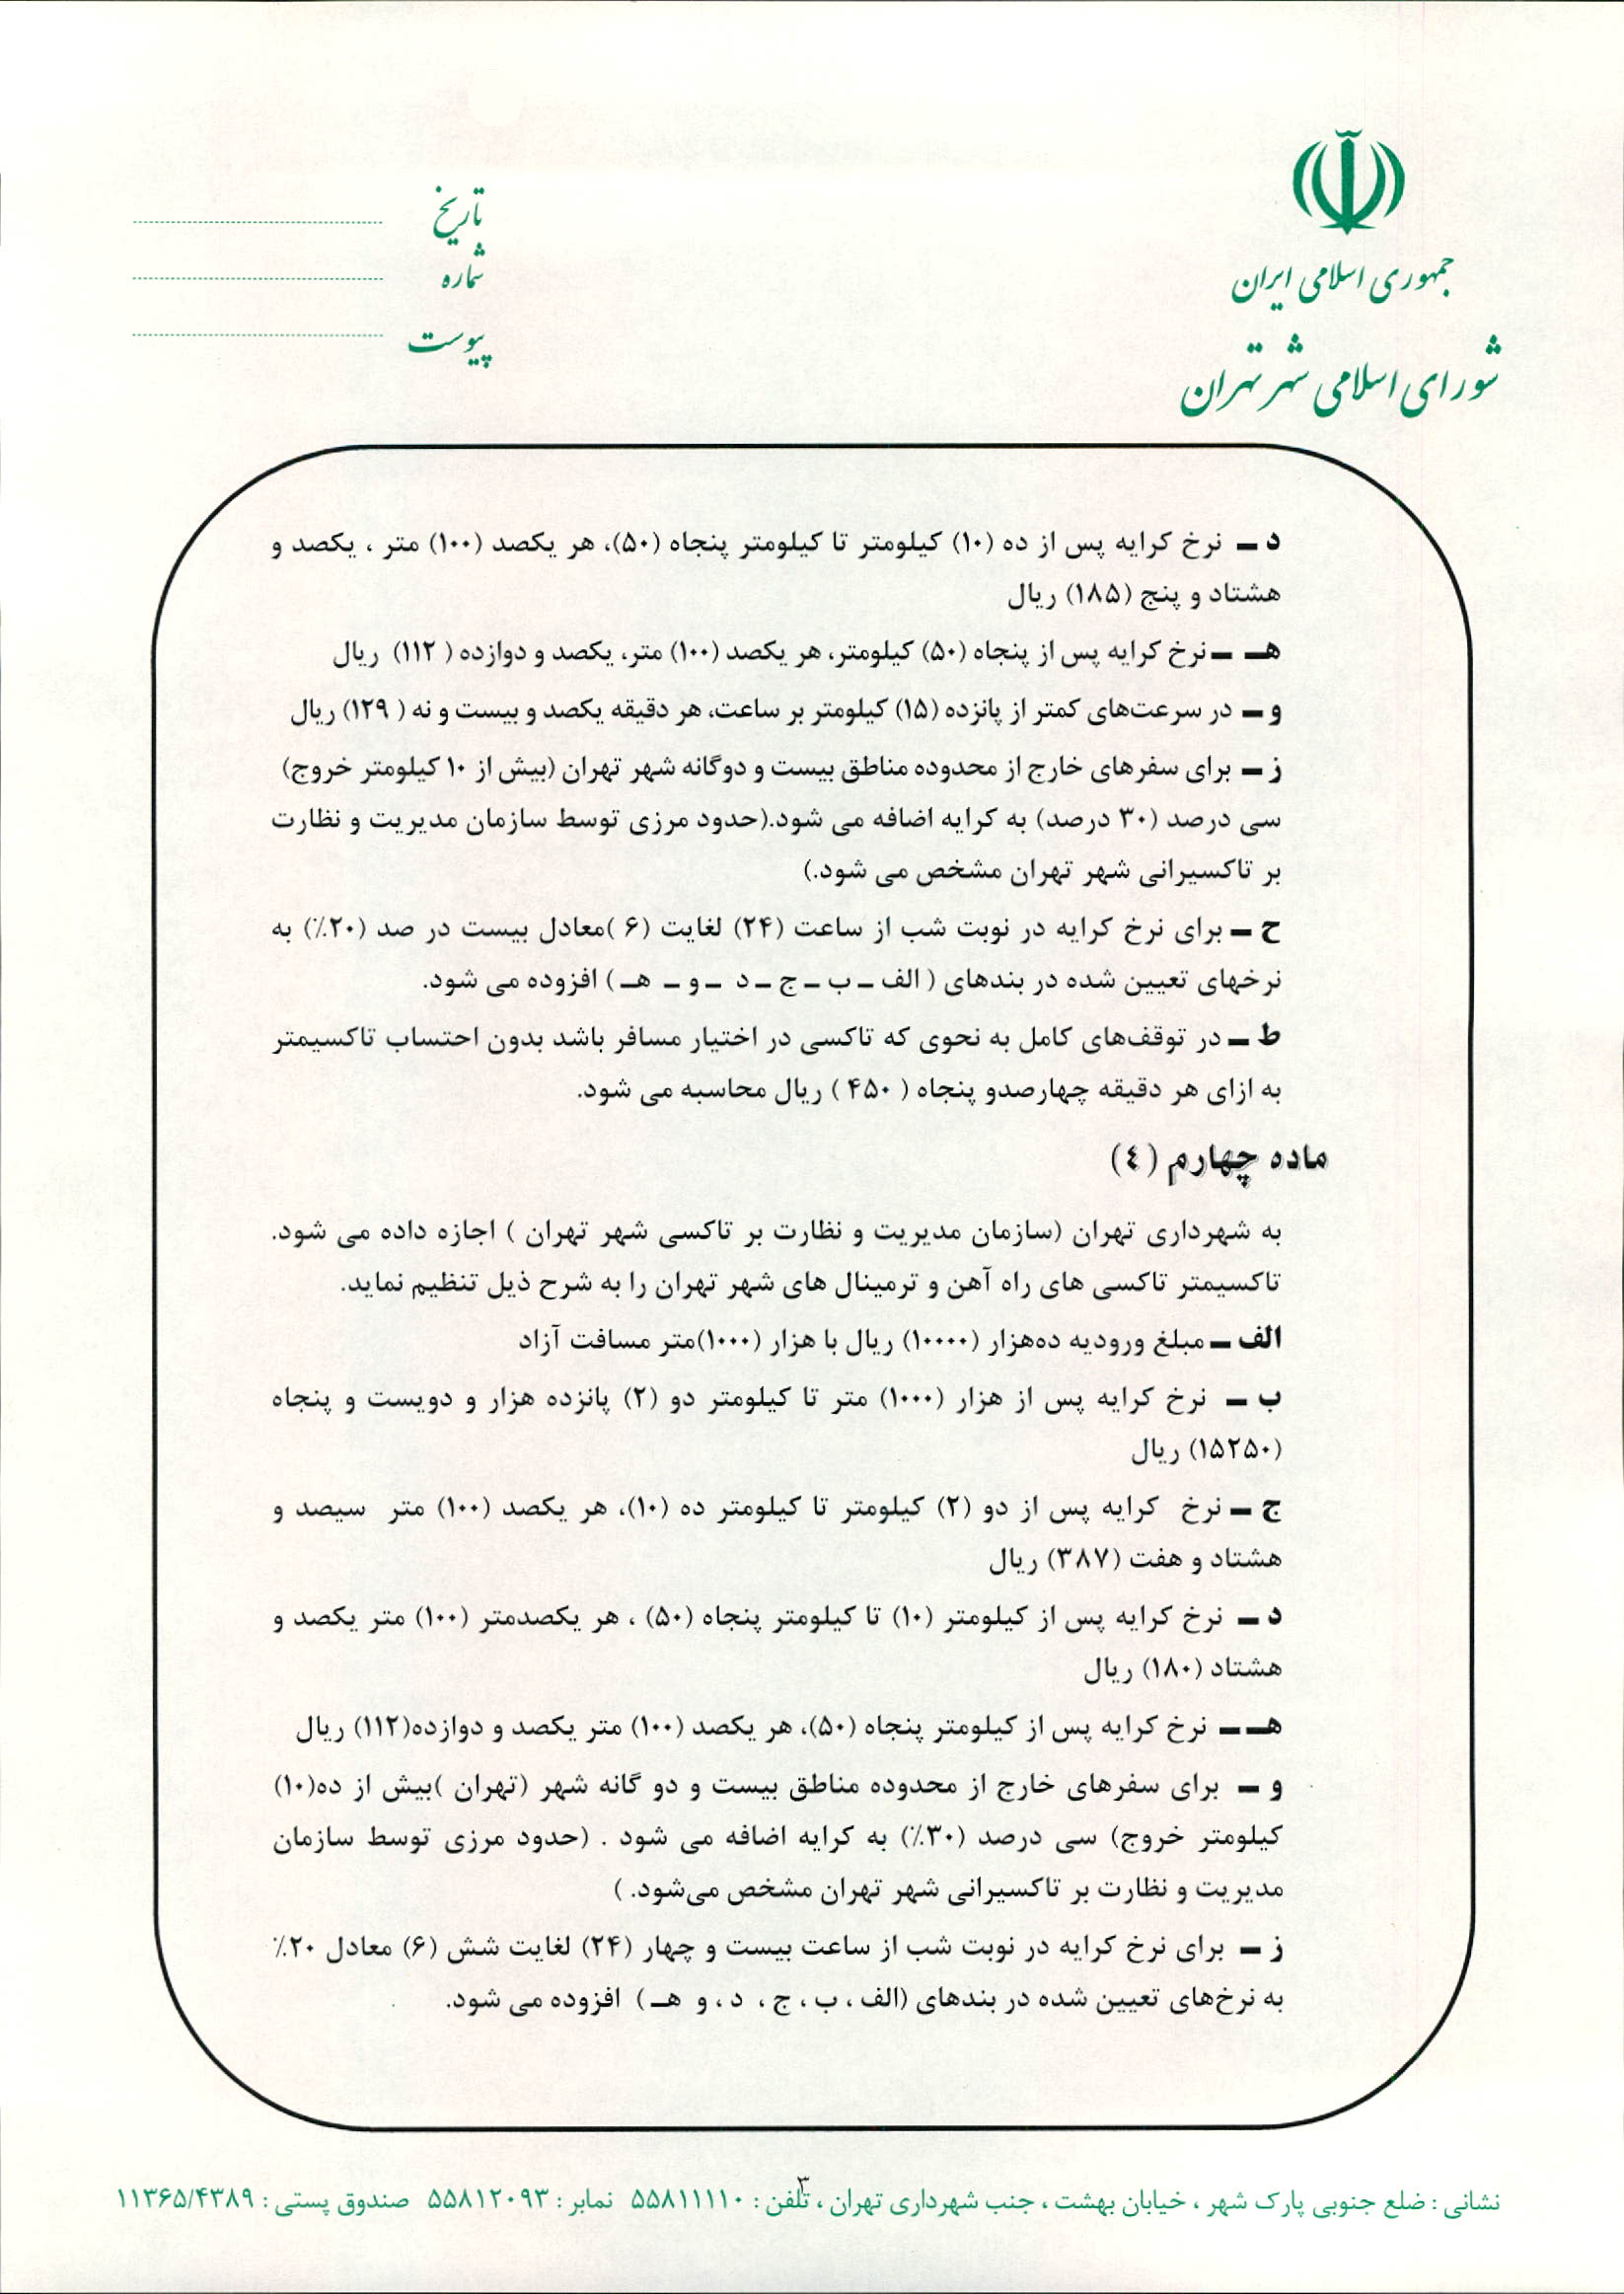 جمهوری اسلامی ایران
شورای اسلامی شهر تهران
تاریخ
شماره
پیوست
د – نرخ کرایه پس از ده (۱۰) کیلومتر تا کیلومتر پنجاه (۵۰)، هر یکصد (۱۰۰) متر ، یکصد و
هشتاد و پنج (۱۸۵) ریال
هـ – نرخ کرایه پس از پنجاه (۵۰) کیلومتر، هر یکصد (۱۰۰) متر، یکصد و دوازده ( ۱۱۲) ریال
و – در سرعت‌های کمتر از پانزده (۱۵) کیلومتر بر ساعت، هر دقیقه یکصد و بیست و نه ( ۱۲۹) ریال
ز – برای سفرهای خارج از محدوده مناطق بیست و دوگانه شهر تهران (بیش از ۱۰ کیلومتر خروج)
سی درصد (۳۰ درصد) به کرایه اضافه می شود.(حدود مرزی توسط سازمان مدیریت و نظارت
بر تاکسیرانی شهر تهران مشخص می شود.)
ح – برای نرخ کرایه در نوبت شب از ساعت (۲۴) لغایت (۶ )معادل بیست در صد (۲۰٪) به
نرخهای تعیین شده در بندهای ( الف – ب – ج – د – و – هـ ) افزوده می شود.
ط – در توقف‌های کامل به نحوی که تاکسی در اختیار مسافر باشد بدون احتساب تاکسیمتر
به ازای هر دقیقه چهارصدو پنجاه ( ۴۵۰ ) ریال محاسبه می شود.
ماده چهارم (٤)
به شهرداری تهران (سازمان مدیریت و نظارت بر تاکسی شهر تهران ) اجازه داده می شود.
تاکسیمتر تاکسی های راه آهن و ترمینال های شهر تهران را به شرح ذیل تنظیم نماید.
الف – مبلغ ورودیه ده‌هزار (۱۰۰۰۰) ریال با هزار (۱۰۰۰)متر مسافت آزاد
ب – نرخ کرایه پس از هزار (۱۰۰۰) متر تا کیلومتر دو (۲) پانزده هزار و دویست و پنجاه
(۱۵۲۵۰) ریال
ج – نرخ کرایه پس از دو (۲) کیلومتر تا کیلومتر ده (۱۰)، هر یکصد (۱۰۰) متر سیصد و
هشتاد و هفت (۳۸۷) ریال
د – نرخ کرایه پس از کیلومتر (۱۰) تا کیلومتر پنجاه (۵۰) ، هر یکصدمتر (۱۰۰) متر یکصد و
هشتاد (۱۸۰) ریال
هـ – نرخ کرایه پس از کیلومتر پنجاه (۵۰)، هر یکصد (۱۰۰) متر یکصد و دوازده(۱۱۲) ریال
و – برای سفرهای خارج از محدوده مناطق بیست و دو گانه شهر (تهران )بیش از ده(۱۰)
کیلومتر خروج) سی درصد (۳۰٪) به کرایه اضافه می شود . (حدود مرزی توسط سازمان
مدیریت و نظارت بر تاکسیرانی شهر تهران مشخص می‌شود. )
ز – برای نرخ کرایه در نوبت شب از ساعت بیست و چهار (۲۴) لغایت شش (۶) معادل ۲۰٪
به نرخ‌های تعیین شده در بندهای (الف ، ب ، ج ، د ، و هـ ) افزوده می شود.
۳
نشانی : ضلع جنوبی پارک شهر ، خیابان بهشت ، جنب شهرداری تهران ، تلفن : ۵۵۸۱۱۱۱۰ نمابر : ۵۵۸۱۲۰۹۳ صندوق پستی : ۱۱۳۶۵/۴۳۸۹